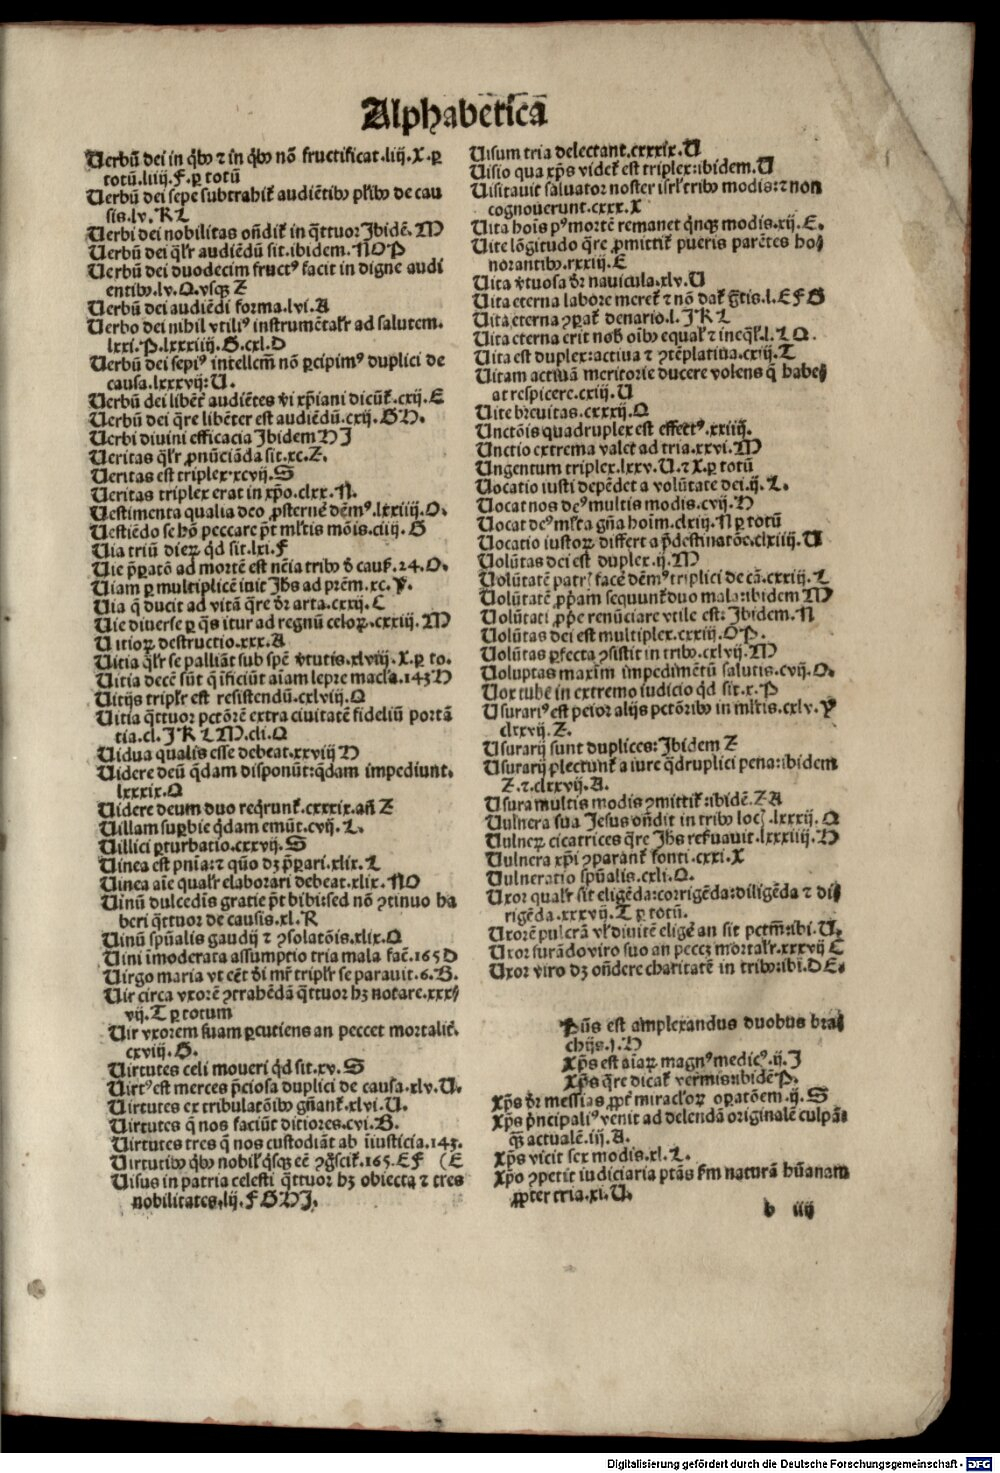 Alphabeticā
Verbū dei in qͥbꝰ ⁊ in qͥbꝰ nō fructificat.liij.X.ꝑ
totū.liiij.F.ꝑ totū
Verbū dei sepe subtrahiť audiētibꝰ plꝛ̄ibꝰ de cau
sis.lv.K L
Verbi dei nobilitas oñdiť in qͣttuor Ibidē.M
Verbū dei qͣlꝛ̄ audiēdū sit.ibidem.N O P
Verbū dei duodecim fructꝰ facit in digne audi
entibꝰ.lv.Q.vsqꝫ Z
Verbū dei audiēdi forma.lvi.A
Verbo dei nihil vtiliꝰ instrumētalꝛ̄ ad salutem.
lxxi.P.lxxxiiij.G.cxl.D
Verbū dei sepiꝰ intellem̄ nō ꝑcipimꝰ duplici de
causa.lxxxvij:U.
Verbū dei libēť audiētes ꝟi xp̄iani dicūť.cxij.E
Verbū dei qͣre libēter est audiēdū.cxij.G H.
Verbi divini efficacia Ibidem H I
Veritas qͣlꝛ̄ ꝓnūciāda sit.xc.Z.
Veritas est triplex.xcvij.S
Veritas triplex erat in xp̄o.clxx.N.
Vestimenta qualia deo ꝓsterne᷑ dēmꝰ.lxxiiij.O.
Vestiēdo se hō peccare p̄t ml̄tis mōis.ciiij.G
Via triū dieꝝ qͥd sit.lxi.F
Vie p̄ꝑatō ad mortē est nēia tribꝰ đ cauš.24.O.
Viam ꝑ multiplicē iuit Jhs̄ ad prēm.xc.Y.
Via q̄ ducit ad vitā qͣre đr arta.cxxij.C
Vie diverse ꝑ qͣs itur ad regnū celoꝝ.cxxiij.M
Vitioꝝ destructio.xxx.A
Vitia qͣlꝛ̄ se palliāt sub spē ꝟtutis.xlviij.X.ꝑ to.
Vitia decē sūt q̄ īficiūt aīam lepre macl̄a.143 H
Vitijs triplꝛ̄ est resistendū.cxlviij.Q
Vitia qͣttuor pctōrē extra ciuitatē fideliū portā
tia.cl.I K L M.cli.Q
Vidua qualis esse debeat.xxviij H
Videre deū qͣdam disponūt:qͣdam impediunt.
lxxxix.Q
Videre deum duo reqͥrunť.cxxxix.añ Z
Villam suꝑbie qͥdam emūt.cvij.L.
Villici ꝑturbatio.cxxvij.S
Vinea est pnīa:⁊ quō dꝫ p̄ꝑari.xlix.L
Vinea aīe qualꝛ̄ elaborari debeat.xlix.N O
Vinū dulcedīs gratie p̄t bibi:sed nō ꝯtinuo ha
beri qͣttuor de causis.xl.R
Vinū spūalis gaudij ⁊ ꝯsolatōis.xlix.Q
Vini īmoderata assumptio tria mala faē.165 D
Virgo maria vt cēt đi mr̄ triplꝛ̄ se parauit.6.B.
Vir circa vxorē ꝯtrahēdā qͣttuor hꝫ notare.xxx⸗
vij.T ꝑ totum
Vir vxorem suam ꝑcutiens an peccet mortaliť.
cxviij.G.
Virtutes celi moueri qͥd sit.xv.S
Virtꝰ est merces p̄ciosa duplici de causa.xlv.U.
Virtutes ex tribulatōibꝰ gñanť.xlvi.U.
Virtutes q̄ nos faciūt ditiores.cvi.B.
Virtutes tres q̄ nos custodiāt ab iīusticia.143.
Virtutibꝰ qͥbꝰ nobiľ qͥsqꝫ eē ꝯgͦsciť.165.E F (E
Visus in patria celesti qͣttuor hꝫ obiecta ⁊ tres
nobilitates.lij.F G H I.
Visum tria delectant.cxxxix.U
Visio qua xp̄s videť est triplex:ibidem.U
Visitauit saluator noster isrľ tribꝰ modis:⁊ non
cognouerunt.cxxx.X
Vita hoīs pꝰ mortē remanet qͥnqꝫ modis.xij.E.
Vite lōgitudo qͣre ꝓmittiť pueris parētes ho⸗
norantibꝰ.xxxiij.E
Vita ꝟtuosa đr nauicula.xlv.U
Vita eterna labore mereť ⁊ nō dať gͣtis.l.E F G
Vita eterna ꝯꝑať denario.l.I K L
Vita eterna erit nob̄ oībꝰ equaľ ⁊ ineqͣľ.l.L Q.
Vita est duplex:actiua ⁊ ꝯtēplatiua.cxij.T
Vitam actiuā meritorie ducere volens q̄ habe⸗
at respicere.cxij.U
Vite breuitas.cxxxij.Q
Unctōis quadruplex est effectꝰ.xxiiij.
Unctio extrema valet ad tria.xxvi.M
Ungentum triplex.lxxv.U.⁊ X.ꝑ totū
Vocatio iusti depēdet a volūtate dei.ij.L.
Vocat nos deꝰ multis modis.cvij.H
Vocat deꝰ ml̄ta gña hoīm.clxiij.N ꝑ totū
Vocatio iustoꝝ differt a p̄destinatōe.clxiiij.U
Volūtas dei est duplex.ij.M
Volūtatē patrꝭ face᷑ dēmꝰ triplici de cā.cxxiij.L
Volūtatē ꝓp̄am sequunť duo mala:ibidem M
Volūtati ꝓp̄e renūciare vtile est:Ibidem.N
Volūtas dei est multiplex.cxxiij.O P.
Volūtas ꝑfecta ꝯsistit in tribꝰ.cxlvij.M
Voluptas maxim̄ impedimētū salutis.cvij.O.
Vox tube in extremo iudicio qͥd sit.x.P
Usurariꝰ est peior alijs pctōribꝰ in ml̄tis.cxlv.Y
clxxvij.Z.
Usurarij sunt duplices:Ibidem Z
Usurarij plectunť a iure qͣdruplici pena:ibidem
Z.⁊.clxxvij.A.
Usura multis modis ꝯmittiť:ibidē.Z A
Vulnera sua Jesus oñdit in tribꝰ locꝭ.lxxxij.Q
Vulneꝝ cicatrices qͣre Jhs̄ reseruauit.lxxxiiij.H
Vulnera xp̄i ꝯparanť fonti.cxxi.X
Vulneratio spūalis.cxli.O.
Uxor qualꝛ̄ sit eligēda:corrigēda:diligēda ⁊ di⸗
rigēda.xxxvij.T ꝑ totū.
Uxorē pulcrā vľ diuitē elige᷑ an sit pctm̄:ibi.U.
Uxor furādo viro suo an peccꝫ mortalꝛ̄.xxxvij C
Uxor viro dꝫ oñdere charitatē in tribꝰ:ibī.D E.
Xp̄s est amplexandus duobus bra⸗
chijs.j.H
Xp̄s est aīaꝝ magnꝰ medicꝰ.ij.I
Xp̄s qͣre dicať vermis:ibidē P.
Xp̄s đr messias ꝓpť miracl̄oꝝ oꝑatōem.ij.S
Xp̄s p̄ncipaliꝰ venit ad delendā originalē culpā:
qͣꝫ actualē.iij.A.
Xp̄s vicit sex modis.xl.L.
Xp̄o ꝯpetit iudiciaria ptās ẜm naturā hūanam
ꝓpter tria.xi.U.
b iiij
Digitalisierung gefördert durch die Deutsche Forschungsgemeinschaft - DFG